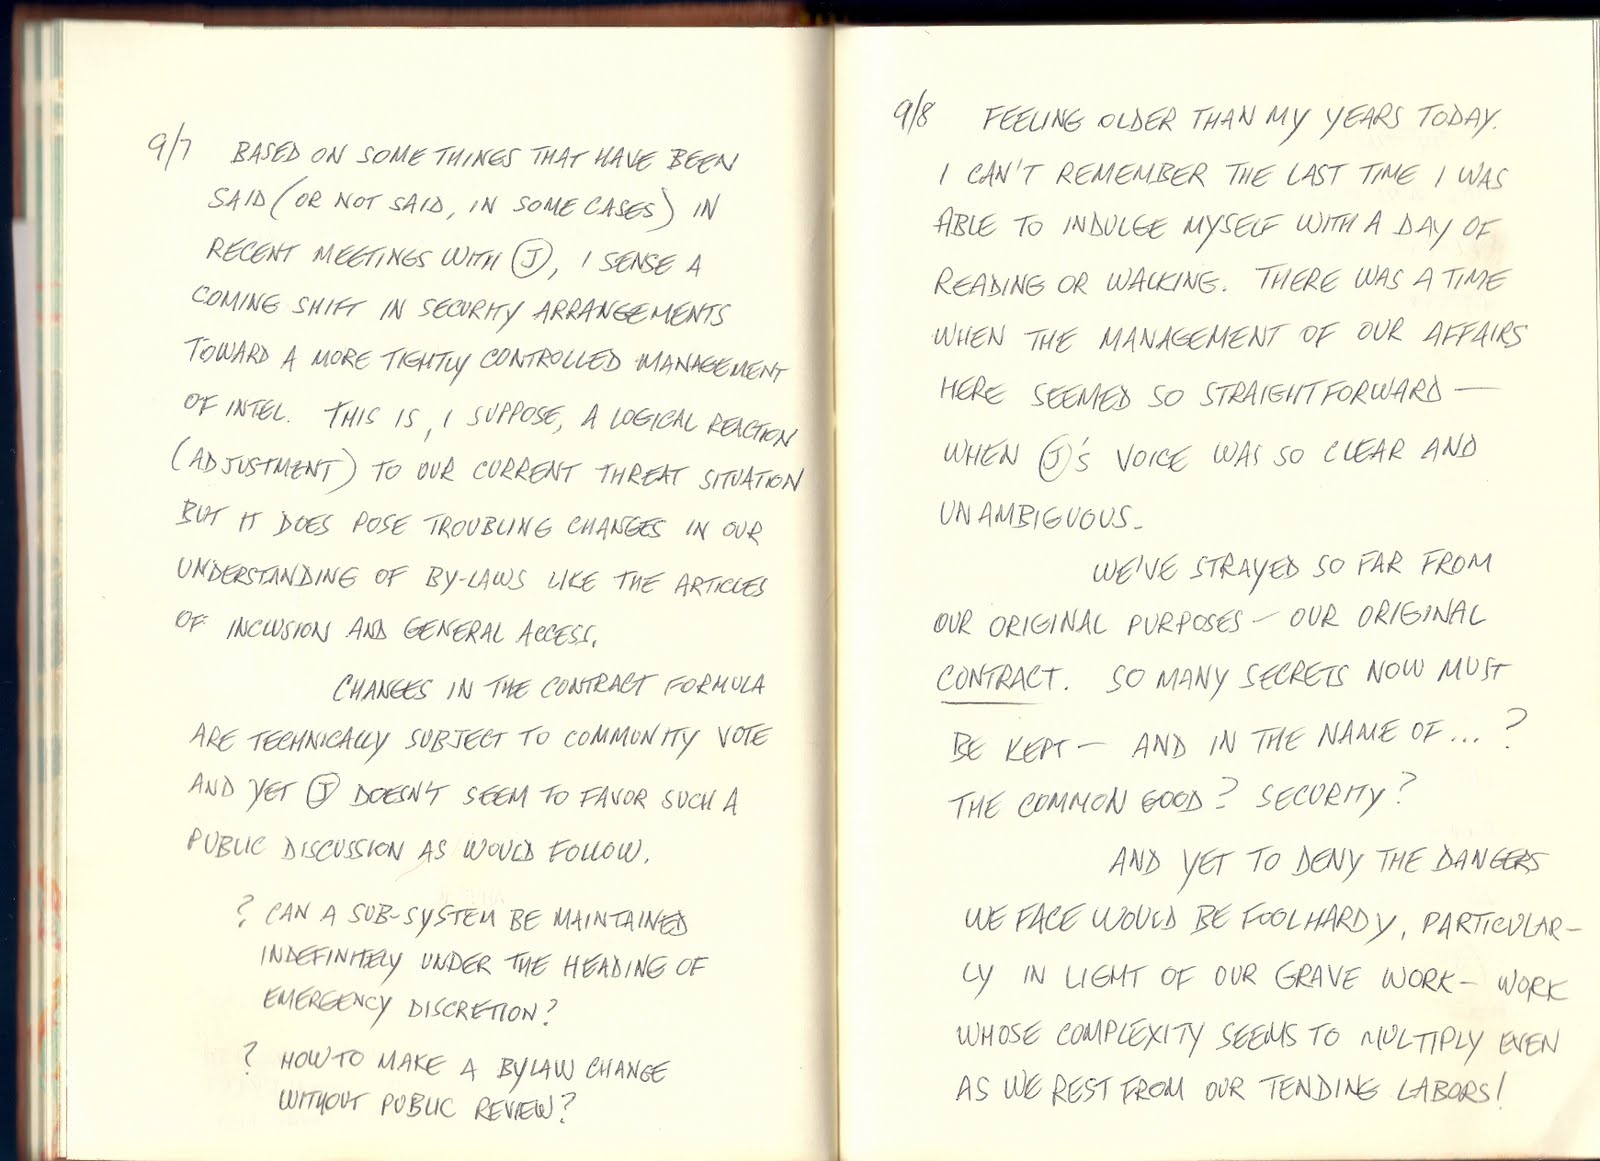 9/7 BASED ON SOME THINGS THAT HAVE BEEN
SAID (OR NOT SAID, IN SOME CASES) IN
RECENT MEETINGS WITH Ⓙ, I SENSE A
COMING SHIFT IN SECURITY ARRANGEMENTS
TOWARD A MORE TIGHTLY CONTROLLED MANAGEMENT
OF INTEL. THIS IS, I SUPPOSE, A LOGICAL REACTION
(ADJUSTMENT) TO OUR CURRENT THREAT SITUATION
BUT IT DOES POSE TROUBLING CHANGES IN OUR
UNDERSTANDING OF BY-LAWS LIKE THE ARTICLES
OF INCLUSION AND GENERAL ACCESS.
CHANGES IN THE CONTRACT FORMULA
ARE TECHNICALLY SUBJECT TO COMMUNITY VOTE
AND YET Ⓙ DOESN'T SEEM TO FAVOR SUCH A
PUBLIC DISCUSSION AS WOULD FOLLOW.
? CAN A SUB-SYSTEM BE MAINTAINED
INDEFINITELY UNDER THE HEADING OF
EMERGENCY DISCRETION?
? HOW TO MAKE A BYLAW CHANGE
WITHOUT PUBLIC REVIEW?
9/8 FEELING OLDER THAN MY YEARS TODAY.
I CAN'T REMEMBER THE LAST TIME I WAS
ABLE TO INDULGE MYSELF WITH A DAY OF
READING OR WALKING. THERE WAS A TIME
WHEN THE MANAGEMENT OF OUR AFFAIRS
HERE SEEMED SO STRAIGHTFORWARD —
WHEN Ⓙ'S VOICE WAS SO CLEAR AND
UNAMBIGUOUS.
WE'VE STRAYED SO FAR FROM
OUR ORIGINAL PURPOSES — OUR ORIGINAL
CONTRACT. SO MANY SECRETS NOW MUST
BE KEPT — AND IN THE NAME OF...?
THE COMMON GOOD? SECURITY?
AND YET TO DENY THE DANGERS
WE FACE WOULD BE FOOLHARDY, PARTICULAR-
LY IN LIGHT OF OUR GRAVE WORK — WORK
WHOSE COMPLEXITY SEEMS TO MULTIPLY EVEN
AS WE REST FROM OUR TENDING LABORS!